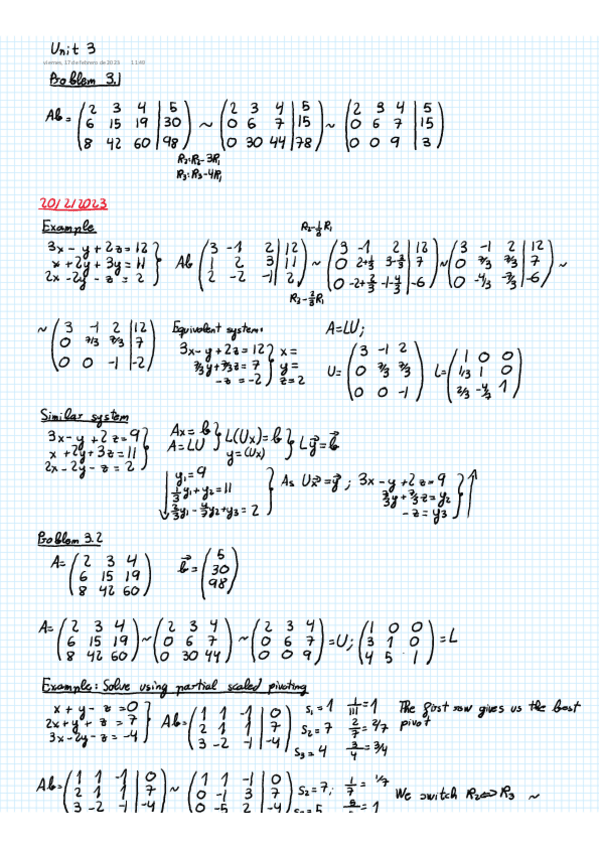 Unit 3
viernes, 17 de febrero de 2023 11:49
Problem 3.1
Ab = (2 3 4 | 5; 6 15 19 | 30; 8 42 60 | 98) ~ (2 3 4 | 5; 0 6 7 | 15; 0 30 44 | 78) ~ (2 3 4 | 5; 0 6 7 | 15; 0 0 9 | 3)
R2: R2-3R1
R3: R3-4R1
20/2/2023
Example
3x - y + 2z = 12
x + 2y + 3y = 11
2x - 2y - z = 2
Ab (3 -1 2 | 12; 1 2 3 | 11; 2 -2 -1 | 2) ~ (3 -1 2 | 12; 0 2+1/3 3-2/3 | 7; 0 -2+2/3 -1-4/3 | -6) ~ (3 -1 2 | 12; 0 7/3 7/3 | 7; 0 -4/3 -7/3 | -6) ~
R3-2/3R1
~ (3 -1 2 | 12; 0 7/3 7/3 | 7; 0 0 -1 | -2)
Equivalent system:
3x - y + 2z = 12
7/3y + 7/3z = 7
-z = -2
x =
y =
z = 2
A = LU;
U = (3 -1 2; 0 7/3 7/3; 0 0 -1) L = (1 0 0; 1/3 1 0; 2/3 -4/7 1)
Similar system
3x - y + 2z = 9
x + 2y + 3z = 11
2x - 2y - z = 2
Ax = b
A = LU
} L(Ux) = b
y = (Ux)
} Ly = b
y1 = 9
1/3y1 + y2 = 11
2/3y1 - 4/7y2 + y3 = 2
As Ux = y; 3x - y + 2z = 9
7/3y + 7/3z = y2
-z = y3
Problem 3.2
A = (2 3 4; 6 15 19; 8 42 60) b = (5; 30; 98)
A = (2 3 4; 6 15 19; 8 42 60) ~ (2 3 4; 0 6 7; 0 30 44) ~ (2 3 4; 0 6 7; 0 0 9) = U; (1 0 0; 3 1 0; 4 5 1) = L
Example: Solve using partial scaled pivoting
x + y - z = 0
2x + y + z = 7
3x - 2y - z = -4
Ab = (1 1 -1 | 0; 2 1 1 | 7; 3 -2 -1 | -4)
S1 = 1
S2 = 7
S3 = 4
1/|1| = 1
2/7 = 2/7
3/4 = 3/4
The first row gives us the best
pivot
Ab = (1 1 -1 | 0; 2 1 1 | 7; 3 -2 -1 | -4) ~ (1 1 -1 | 0; 0 -1 3 | 7; 0 -5 2 | -4) S2 = 7;
We switch R2⇔R3 ~